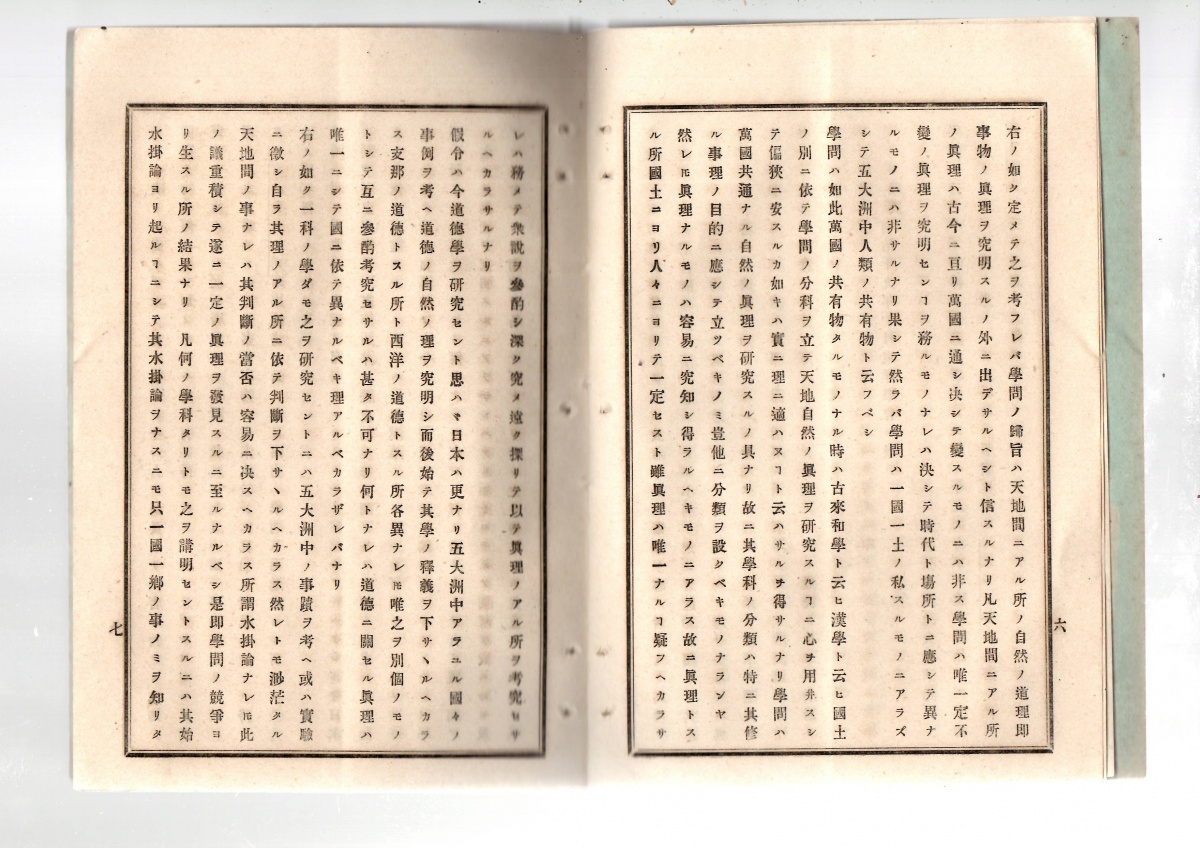 右ノ如ク定メテ之ヲ考フレバ學問ノ歸旨ハ天地間ニアル所ノ自然ノ道理即
事物ノ眞理ヲ究明スルノ外ニ出デサルヘシト信スルナリ凡天地間ニアル所
ノ眞理ハ古今ニ亘リ萬國ニ通シ决シテ變スルモノニハ非ス學問ハ唯一定不
變ノ眞理ヲ究明センヿヲ務ルモノナレハ决シテ時代ト塲所トニ應シテ異ナ
ルモノニハ非サルナリ果シテ然ラバ學問ハ一國一土ノ私スルモノニアラズ
シテ五大洲中人類ノ共有物ト云フベシ
學問ハ如此萬國ノ共有物タルモノナル時ハ古來和學ト云ヒ漢學ト云ヒ國土
ノ別ニ依テ學問ノ分科ヲ立テ天地自然ノ眞理ヲ研究スルヿニ心ヲ用井スシ
テ偏狹ニ安スルカ如キハ實ニ理ニ適ハヌヿト云ハサルヲ得サルナリ學問ハ
萬國共通ナル自然ノ眞理ヲ研究スルノ具ナリ故ニ其學科ノ分類ハ特ニ其修
ル事理ノ目的ニ應シテ立ツベキノミ豈他ニ分類ヲ設クベキモノナランヤ
然レ𪜈眞理ナルモノハ容易ニ究知シ得ラルヘキモノニアラス故ニ眞理トス
ル所國土ニヨリ人々ニヨリテ一定セスト雖眞理ハ唯一ナルヿ疑フヘカラサ
六
レハ務メテ衆説ヲ參酌シ深ク究メ遠ク探リテ以テ眞理ノアル所ヲ考究セサ
ルヘカラサルナリ
假令ハ今道德學ヲ研究セント思ハヾ日本ハ更ナリ五大洲中アラユル國々ノ
事例ヲ考ヘ道德ノ自然ノ理ヲ究明シ而後始テ其學ノ釋義ヲ下サヽルヘカラ
ス支那ノ道德トスル所ト西洋ノ道德トスル所各異ナレ𪜈唯之ヲ別個ノモノ
トシテ互ニ參酌考究セサルハ甚タ不可ナリ何トナレハ道德ニ關セル眞理ハ
唯一ニシテ國ニ依テ異ナルベキ理アルベカラザレバナリ
右ノ如ク一科ノ學ダモ之ヲ研究セントニハ五大洲中ノ事蹟ヲ考ヘ或ハ實驗
ニ徵シ自ラ其理ノアル所ニ依テ判斷ヲ下サヽルヘカラス然レトモ渺茫タル
天地間ノ事ナレハ其判斷ノ當否ハ容易ニ决スヘカラス所謂水掛論ナレ𪜈此
ノ議重積シテ遂ニ一定ノ眞理ヲ發見スルニ至ルナルベシ是即學問ノ競爭ヨ
リ生スル所ノ結果ナリ 凡何ノ學科タリトモ之ヲ講明セントスルニハ其始
水掛論ヨリ起ルヿニシテ其水掛論ヲナスニモ只一國一鄕ノ事ノミヲ知リタ
七